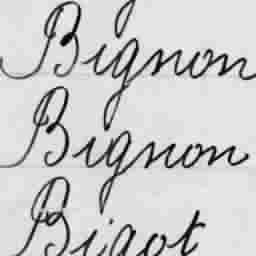 Bignon
Bignon
Bigot